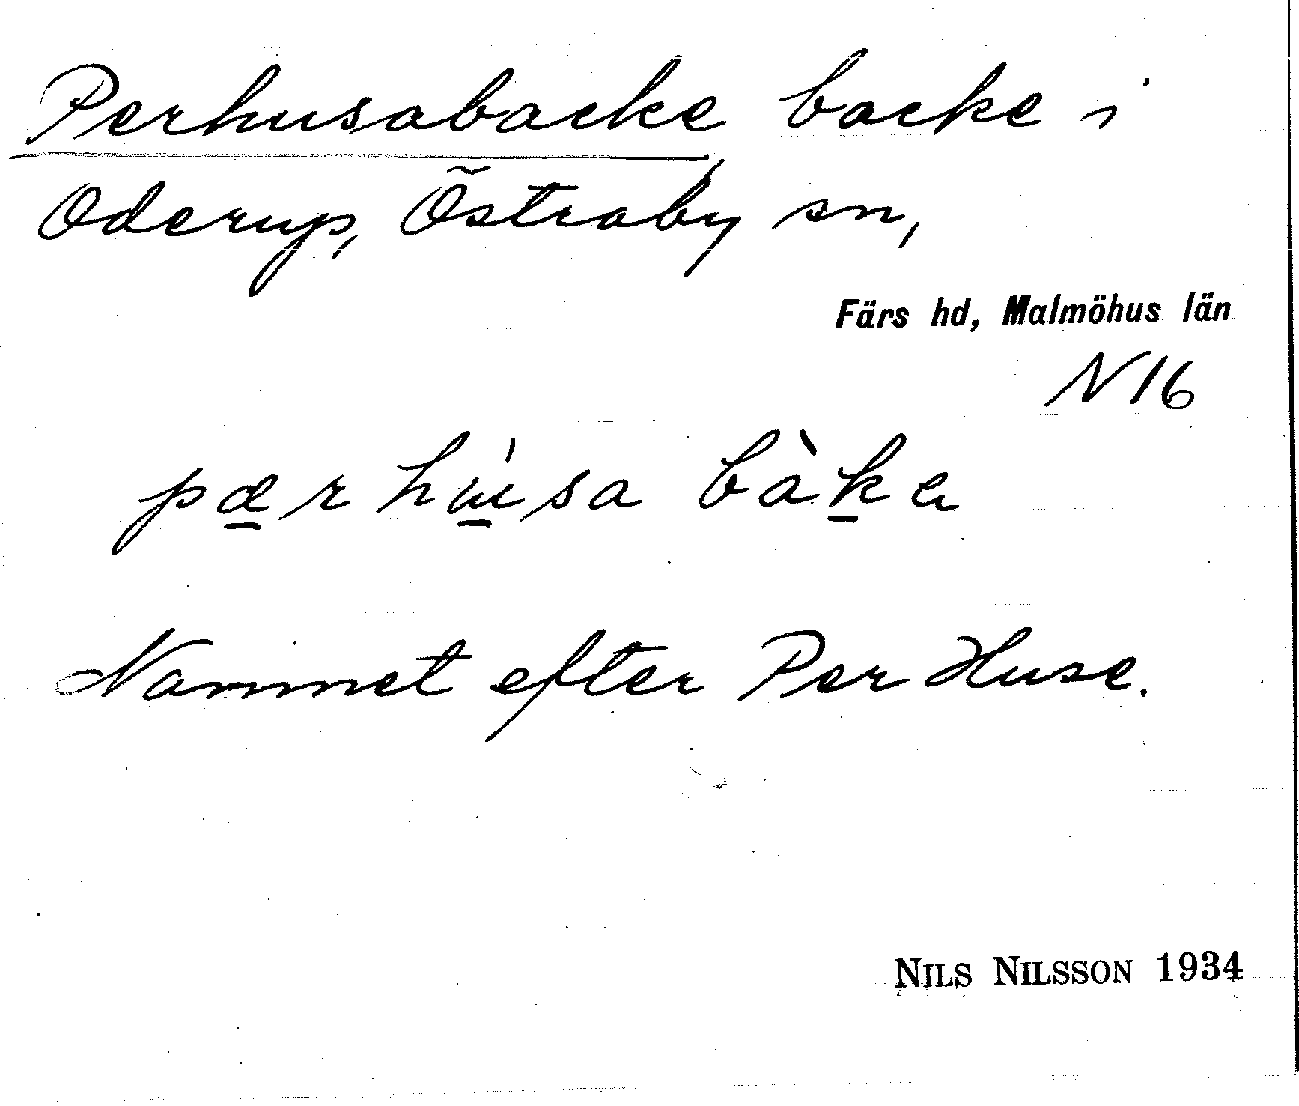 Perhusabacke, backe i
Oderup, Östraby sn,
Färs hd, Malmöhus län
N16
pær húsa bàka
Namnet efter Per Huse.
NILS NILSSON 1934